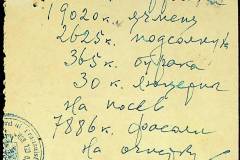 19020 к. ячмень
2625 к. подсолнух
365 к. бурака
30 к. люцерны
На посев
7886 к. фасоли
на очистку